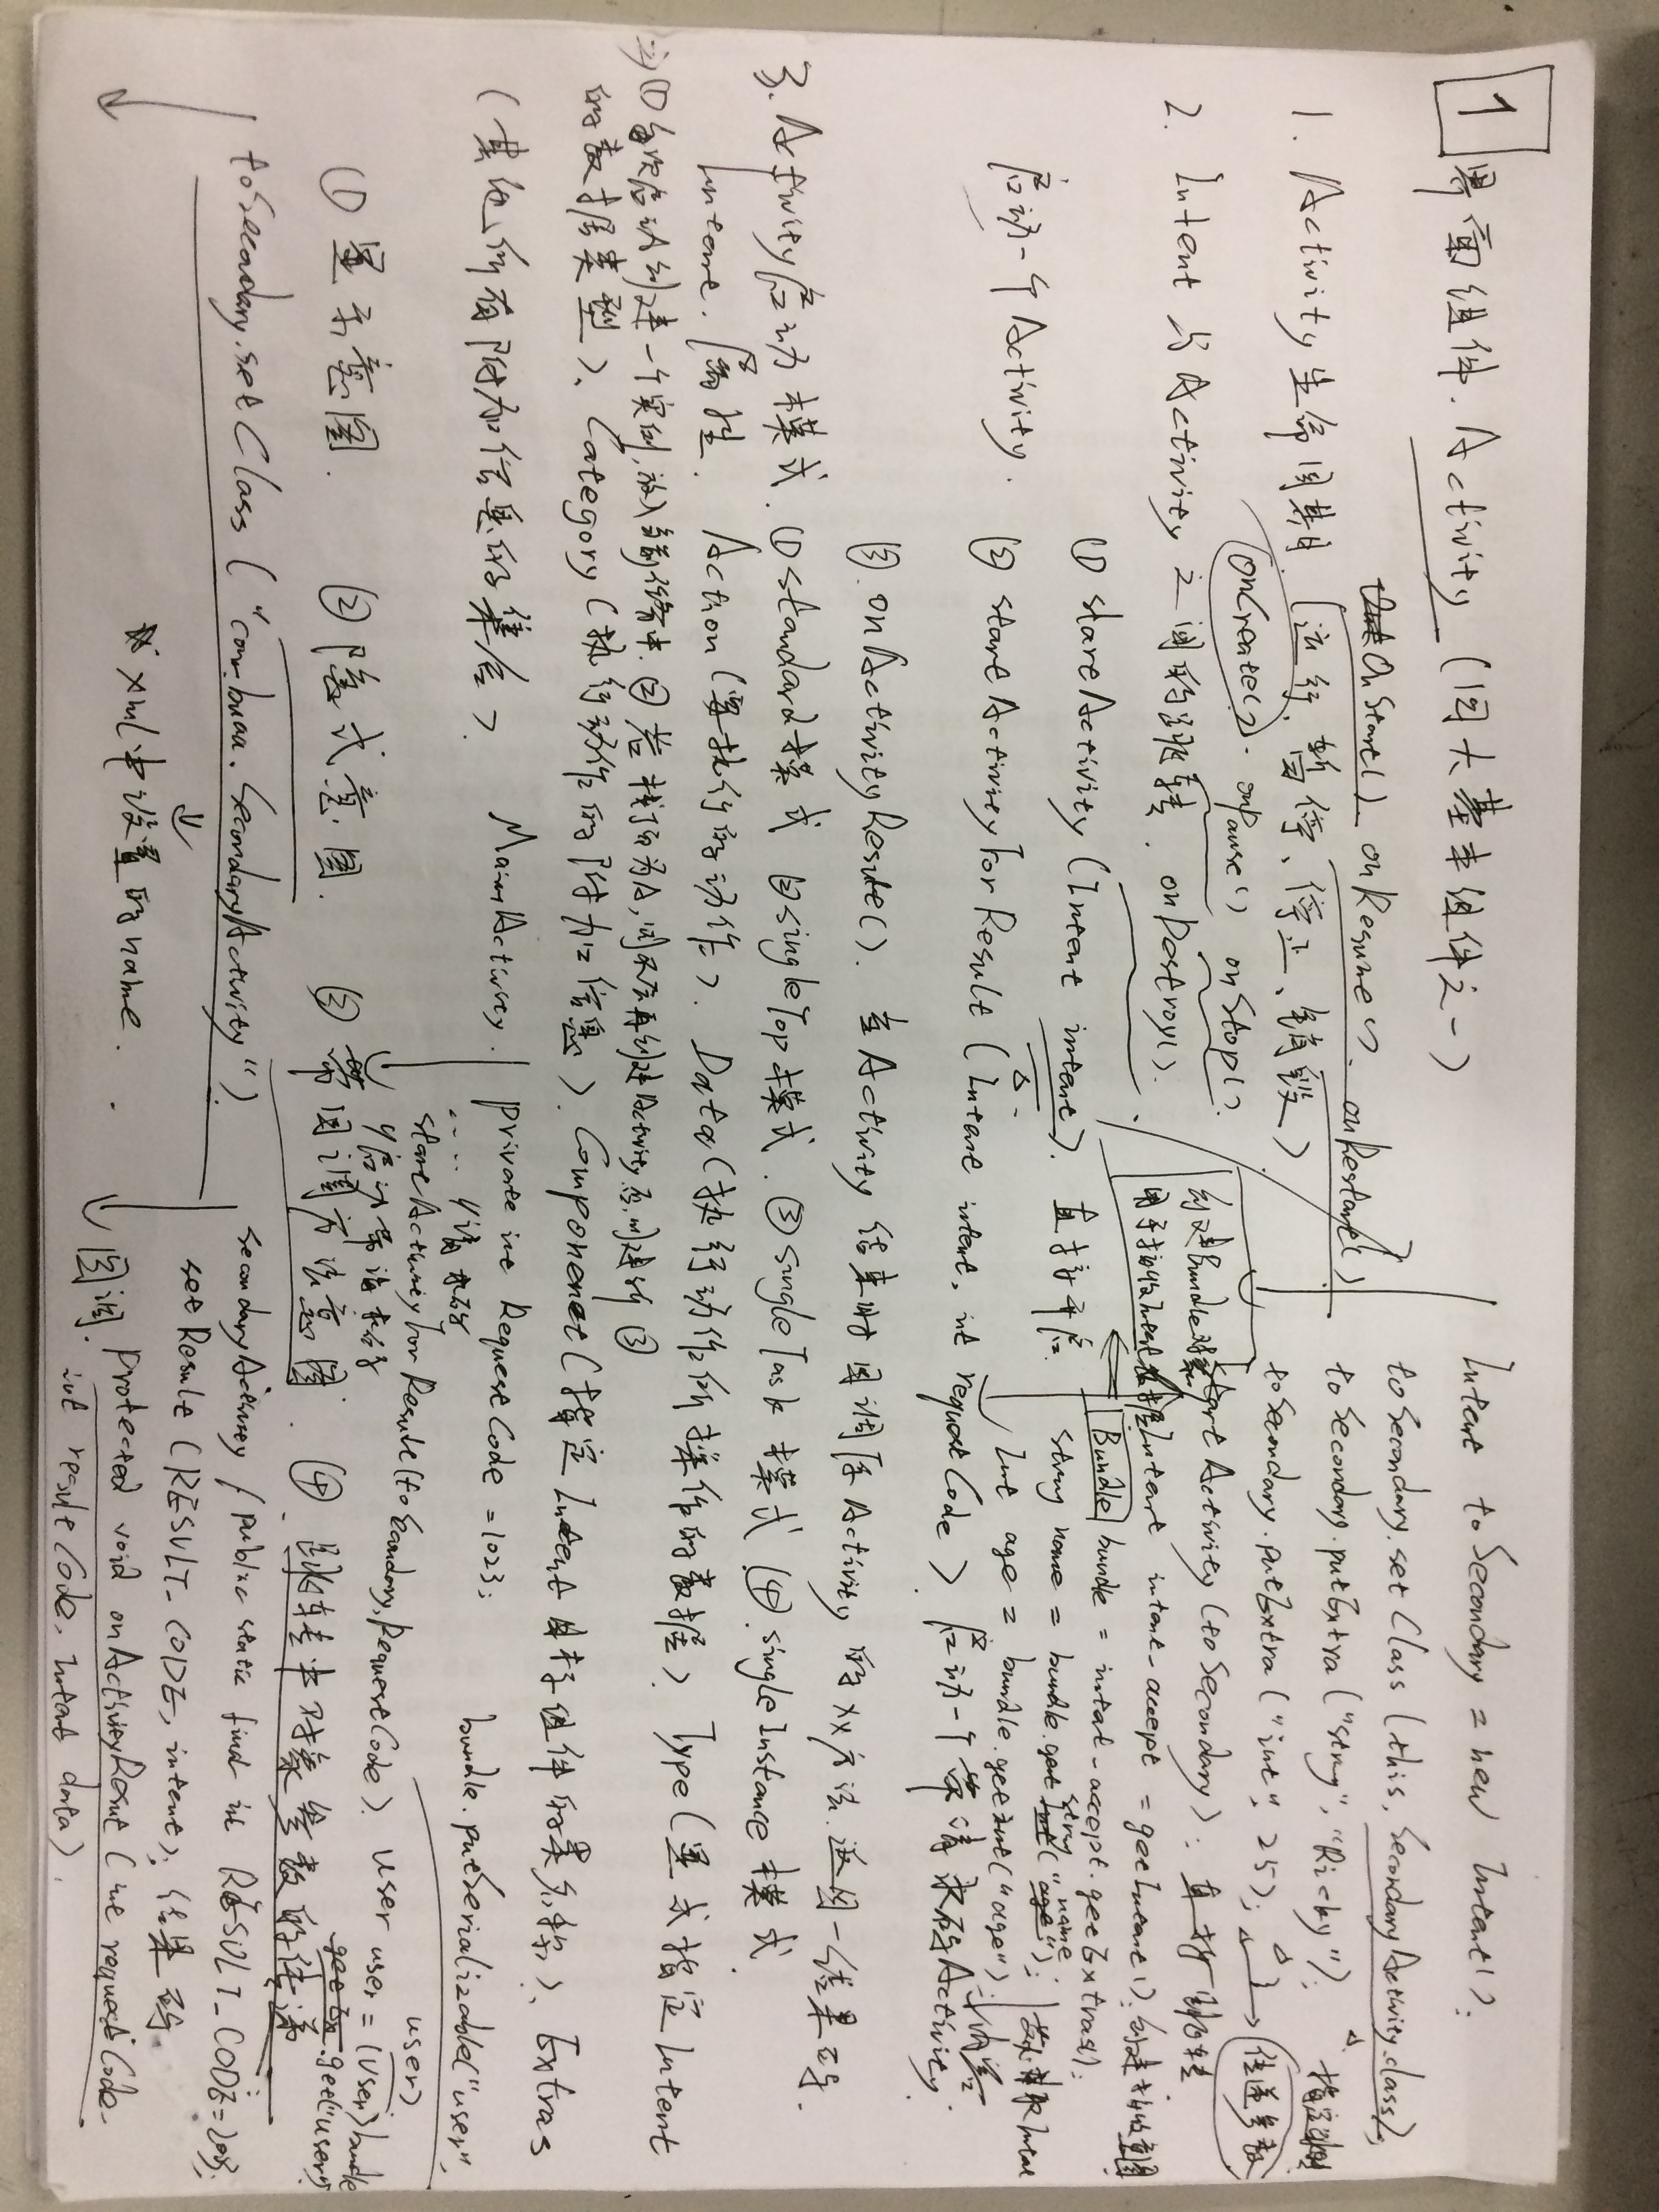 1
界面组件. Activity (四大基本组件之一)
OnStart() onResume() onRestart()
1. Activity 生命周期 (运行、暂停、停止、销毁)
onCreate(). onPause() onStop().
2. Intent 与 Activity 之间的跳转. onDestroy().
启动一个 Activity.
① startActivity (Intent intent). 直接开启.
② startActivityForResult (Intent intent, int requestCode) 启动一个带请求码Activity.
③. onActivityResult(). 当 Activity 结束时回调原Activity 的xx方法.返回一结果码.
Intent toSecondary = new Intent();
toSecondary.setClass (this, SecondaryActivity.class);
指定跳转
toSecondary.putExtra ("string", "Ricky");
toSecondary.putExtra ("int", 25);
传递参数
startActivity (toSecondary); 直接跳转
创建Bundle对象
用于接收Intent数据
Intent intent_accept = getIntent(); 创建接收意图
Bundle bundle = intent_accept.getExtras();
string name = bundle.getstring("name");
Int age = bundle.getint("age");
获取Intent
内容
3. Activity启动模式. ①standard模式 ②singleTop模式. ③singleTask 模式 ④.singleInstance 模式
Intent. 属性. Action (要执行的动作)、Data (执行动作所操作的数据)、Type (显式指定Intent
⇒① 每次启动创建一个实例,放入当前任务中. ② 若栈顶为A,则不会再创建Activity 否则建新 ③
的数据类型)、Category (执行动作的附加信息)、Componenet (指定Intent目标组件的类名称)、Extras
(其他所有附加信息的集合).
MainActivity.
private int RequestCode =1023;
.... //请求码
startActivityForResult(toSecondary,RequestCode).
//启动带请求码
bundle.putSerializable("user",
user)
User user = (User)bundle
.get("user")
① 显示意图. ②隐式意图. ③ 带回调方法意图. ④. 跳转中对象参数的传递
toSecondary.setClass ("com.buaa.SecondaryActivity").
xml中设置的name.
SecondaryActivity / public static final int RESULT_CODE=2013;
setResult (RESULT_CODE, intent); 结果码.
回调. protected void onActivityResut (int requestCode,
int resultCode, Intent data).